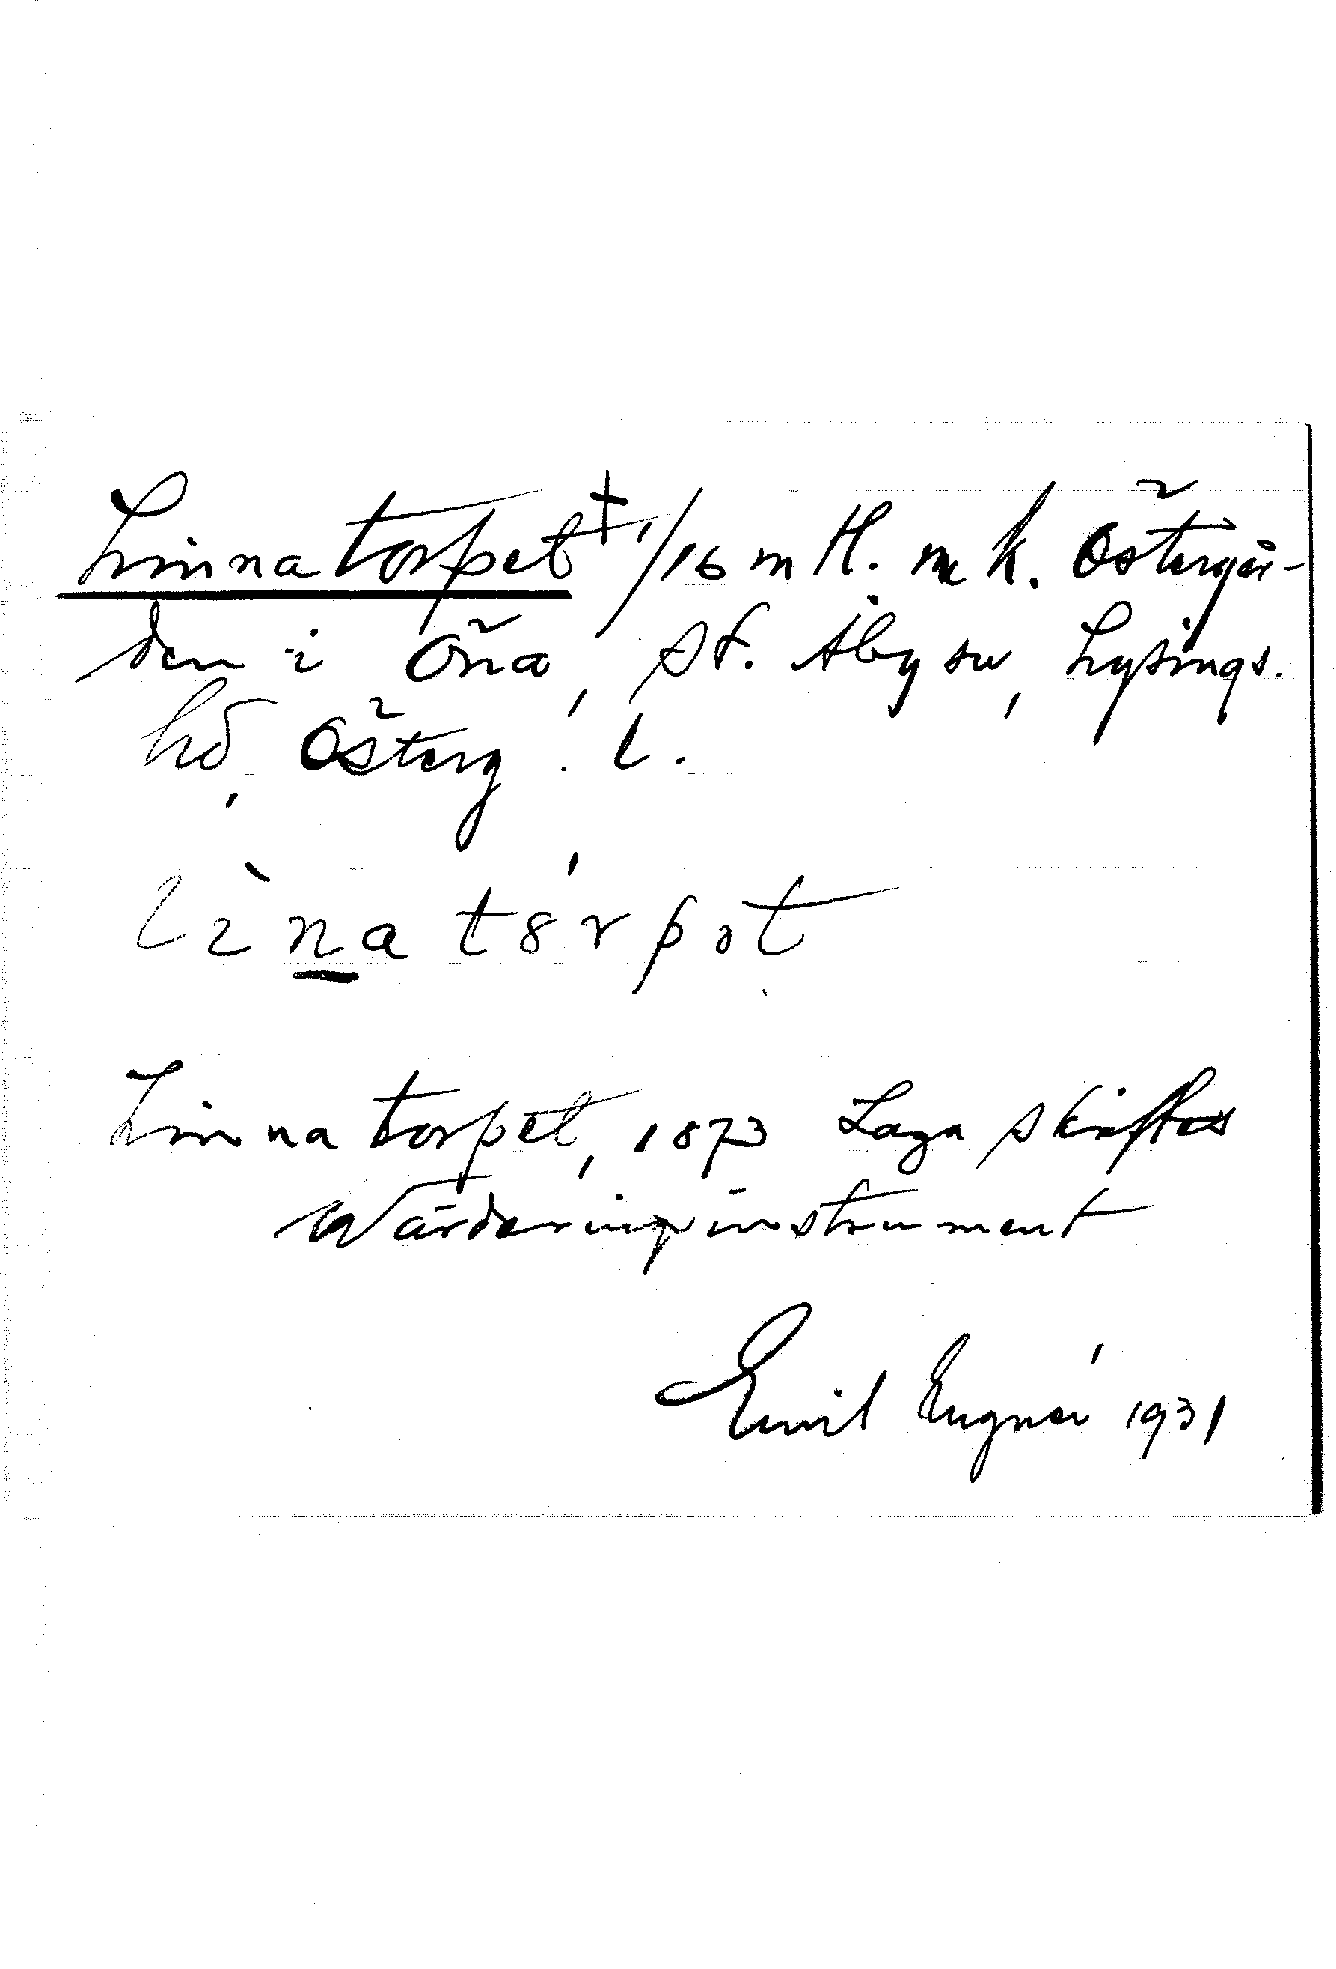 Linnatorpet ‡ 1/16 m H. m k. Östergår-
den i Öna, St. Åby sn, Lysings.
hd, Österg. l.
lìnatórpət
Linnatorpet, 1873 Laga skiftes
Wärderingsinstrument
Emil Eugnér 1931